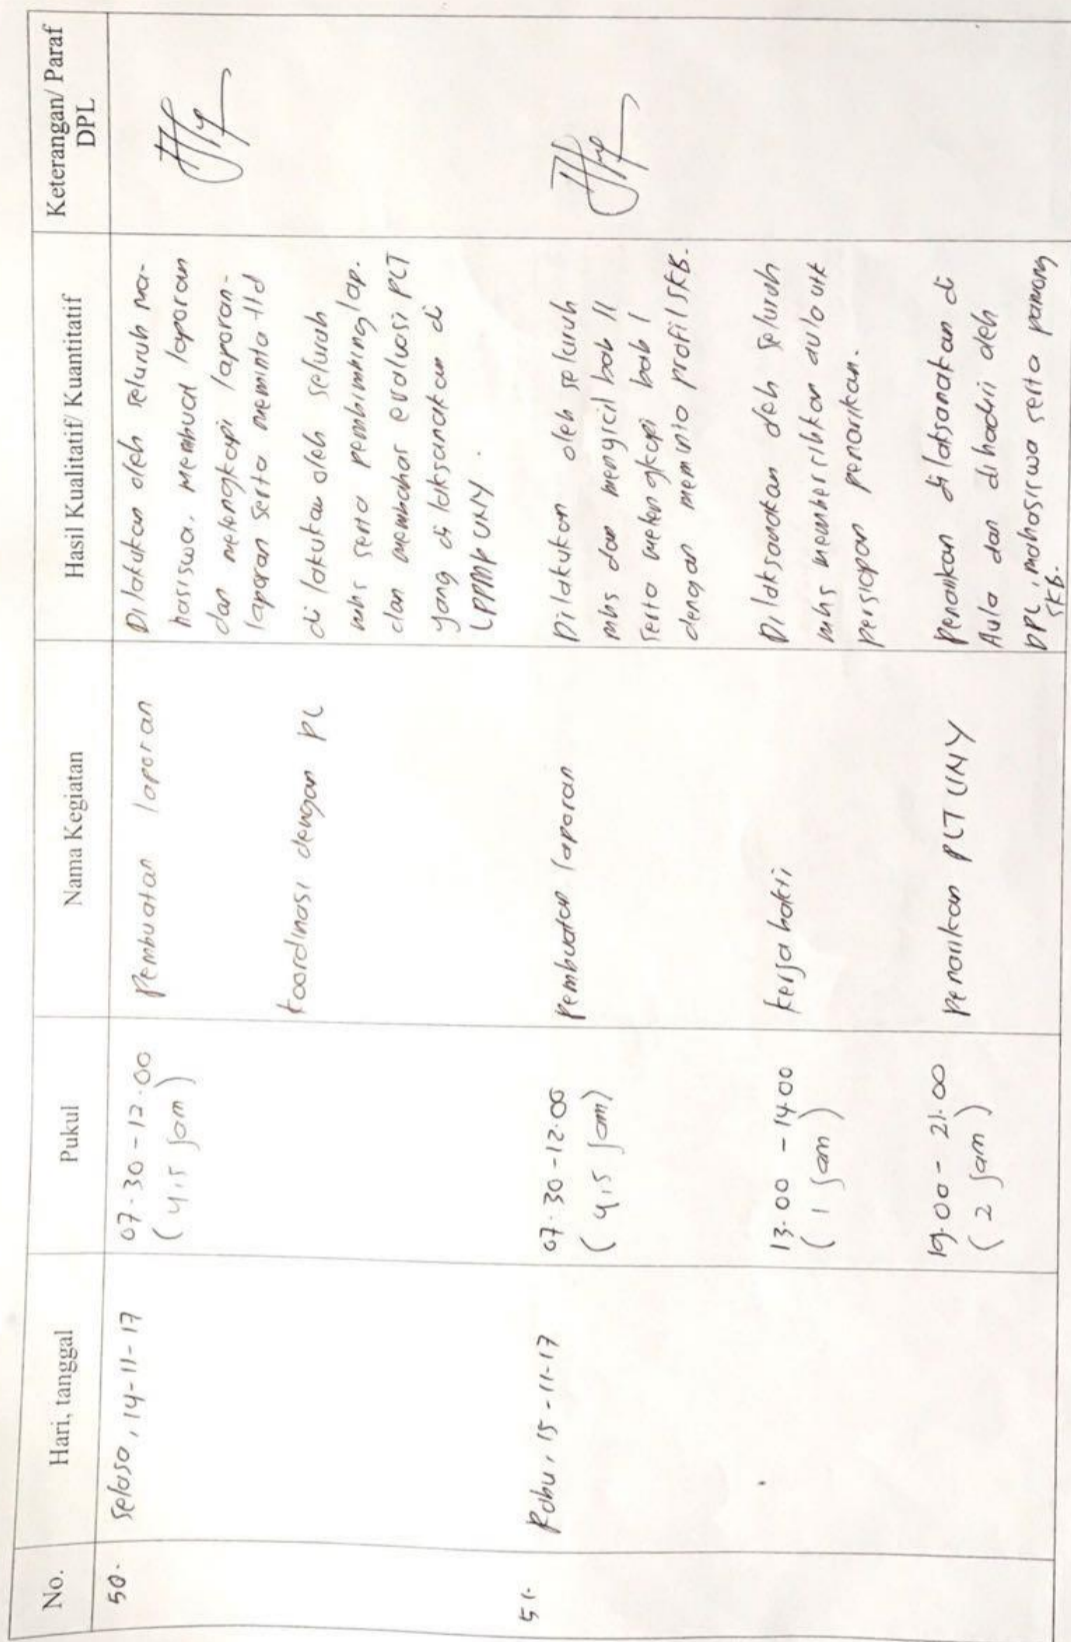 No.
Hari, tanggal
Pukul
Nama Kegiatan
Hasil Kualitatif/ Kuantitatif
Keterangan/ Paraf
DPL
50.
Selasa, 14-11-17
07.30-12.00
(4,5 jam)
Pembuatan laporan
Dilakukan oleh seluruh ma-
hasiswa. membuat laporan
dan melengkapi laporan-
laporan serta meminta ttd
koordinasi dengan PL
di lakukan oleh seluruh
mhs serta pembimbing lap.
dan membahas evaluasi PLT
yang di laksanakan di
LPPMP UNY.
51.
Rabu, 15-11-17
07.30-12.00
(4,5 jam)
Pembuatan laporan
Dilakukan oleh seluruh
mhs dan mengicil bab II
serta melengkapi bab I
dengan meminta profil SKB.
13.00-14.00
(1 jam)
kerja bakti
Dilaksanakan oleh seluruh
mhs membersihkan aula utk
persiapan penarikan.
19.00-21.00
(2 jam)
Penarikan PLT UNY
Penarikan dilaksanakan di
Aula dan dihadiri oleh
DPL, mahasiswa serta pamong
SKB.